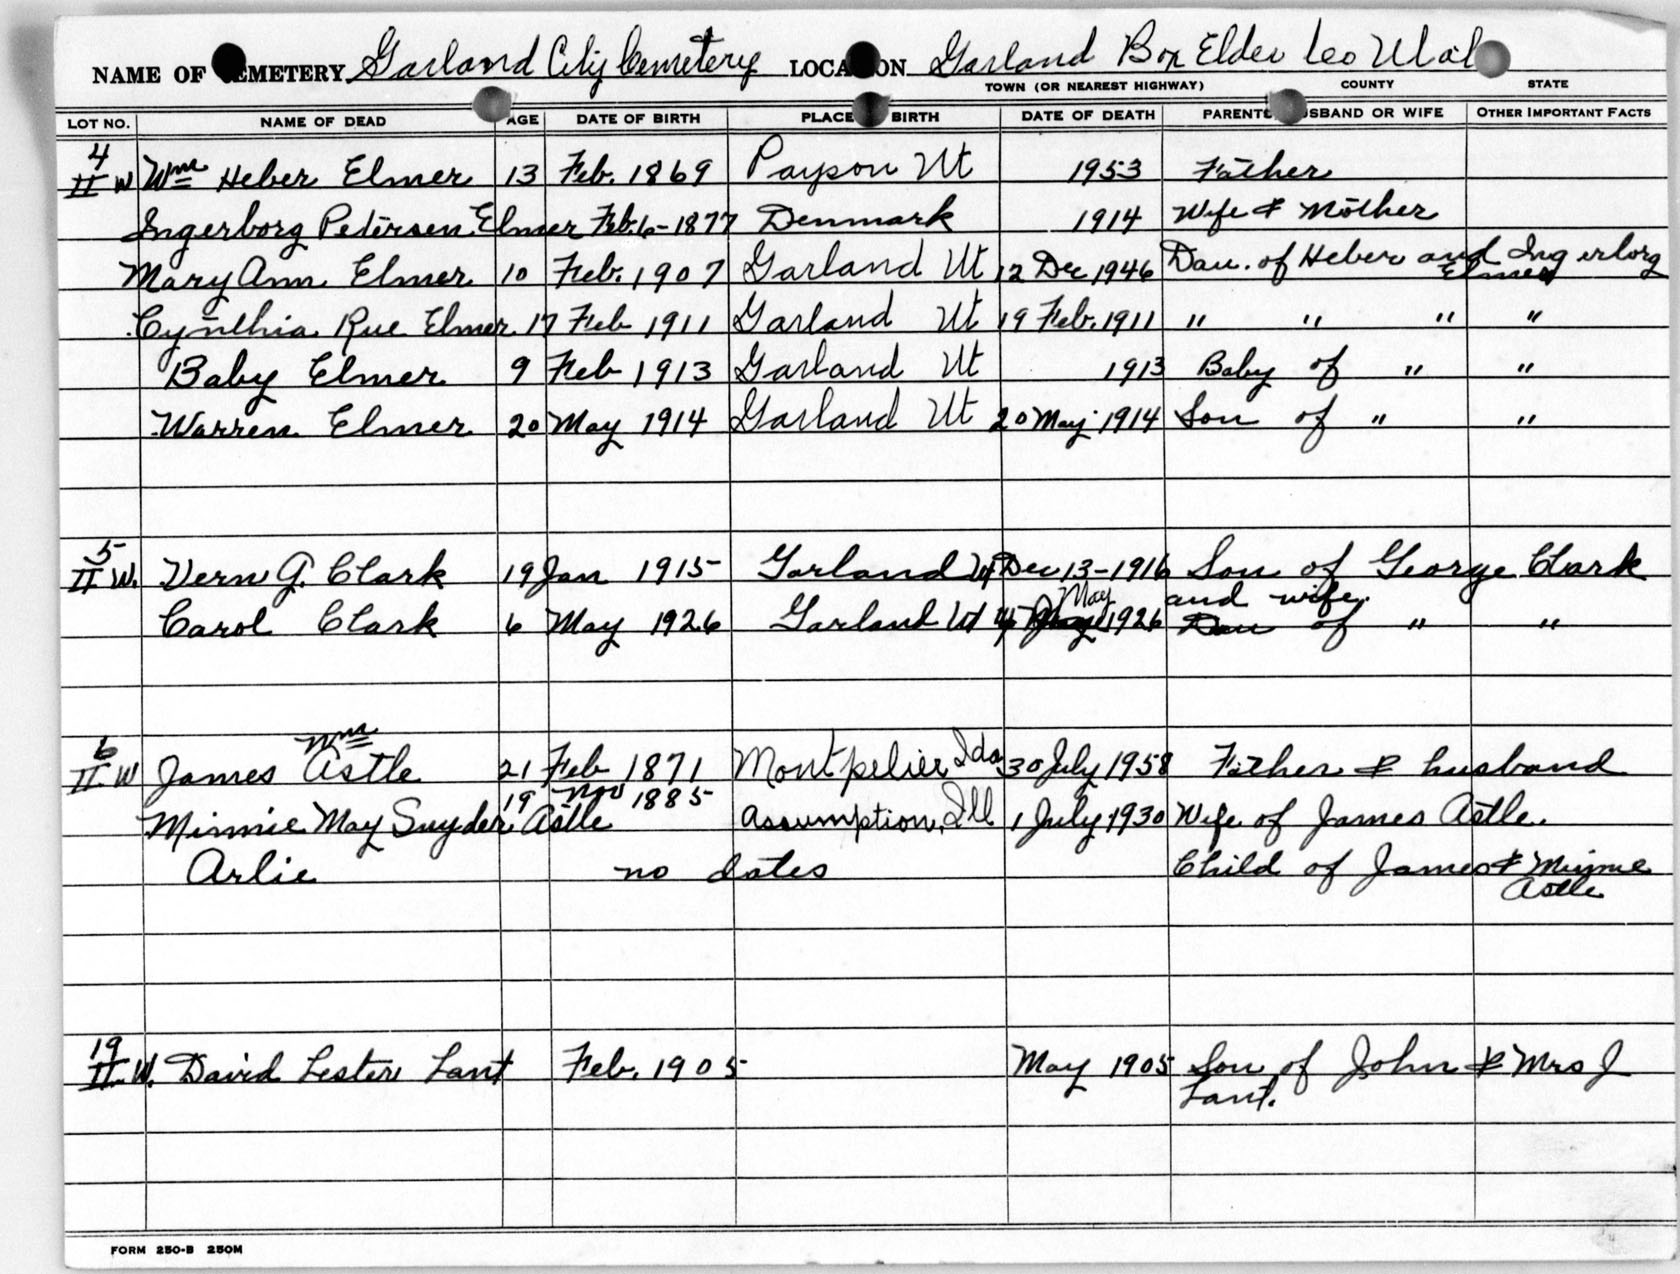 NAME OF CEMETERY Garland City Cemetery LOCATION Garland Box Elder Co Utah
TOWN (OR NEAREST HIGHWAY) COUNTY STATE
LOT NO. NAME OF DEAD AGE DATE OF BIRTH PLACE BIRTH DATE OF DEATH PARENTS HUSBAND OR WIFE OTHER IMPORTANT FACTS
4
II W Wm Heber Elmer 13 Feb. 1869 Payson Ut 1953 Father
Ingerborg Petersen Elmer Feb. 6-1877 Denmark 1914 Wife & Mother
Mary Ann Elmer 10 Feb. 1907 Garland Ut 12 Dec 1946 Dau. of Heber and Ingerborg
Elmer
Cynthia Rue Elmer 17 Feb 1911 Garland Ut 19 Feb. 1911 " " " "
Baby Elmer 9 Feb 1913 Garland Ut 1913 Baby of " "
Warren Elmer 20 May 1914 Garland Ut 20 May 1914 Son of " "
5
II W. Vern G. Clark 19 Jan 1915 Garland Ut Dec 13-1916 Son of George Clark
and wife.
May
Carol Clark 6 May 1926 Garland Ut 1926 Dau of " "
6 Wm
II W James Astle 21 Feb 1871 Montpelier Ida 30 July 1958 Father & husband
19 Nov 1885
Minnie May Snyder Astle Assumption, Ill 1 July 1930 Wife of James Astle.
Arlie no dates Child of James & Minnie
Astle
19
II W. David Lester Lant Feb. 1905 May 1905 Son of John & Mrs J
Lant.
FORM 250-B 250M